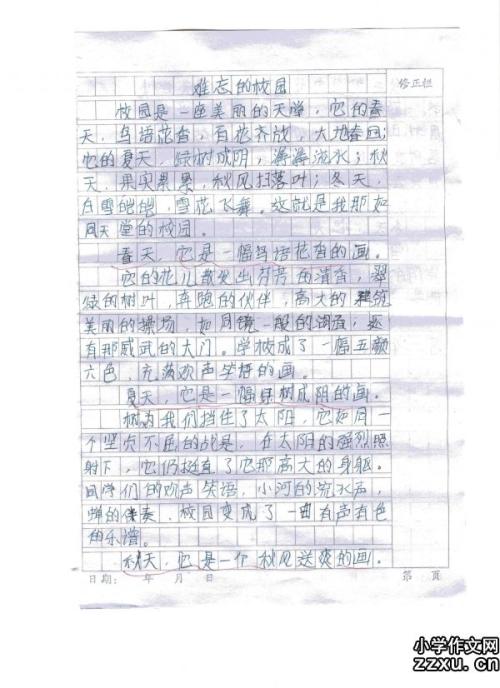 难忘的校园
修正栏
校园是一座美丽的天堂，它的春
天，鸟语花香，百花齐放，大地春回；
它的夏天，绿树成阴，潺潺流水；秋
天，果实累累，秋风扫落叶；冬天，
白雪皑皑，雪花飞舞。这就是我那如
同天堂的校园。
春天，它是一幅鸟语花香的画。
它的花儿散发出芬芳的清香，翠
绿的树叶，奔跑的伙伴，高大的建筑
美丽的操场，如同镜一般的湖面，还
有那威武的大门。学校成了一幅五颜
六色、充满欢声笑语的画。
夏天，它是一幅绿树成阴的画。
树为我们挡住了太阳，它如同一
个坚贞不屈的战是，在太阳的强烈照
射下，它仍挺直了它那高大的身躯。
同学们的欢声笑语，小河的流水声，
蝉的伴奏，校园变成了一曲有声有色
的乐谱。
秋天，它是一个秋风送爽的画。
日期： 年 月 日 第 页
小学作文网
zzxu.cn